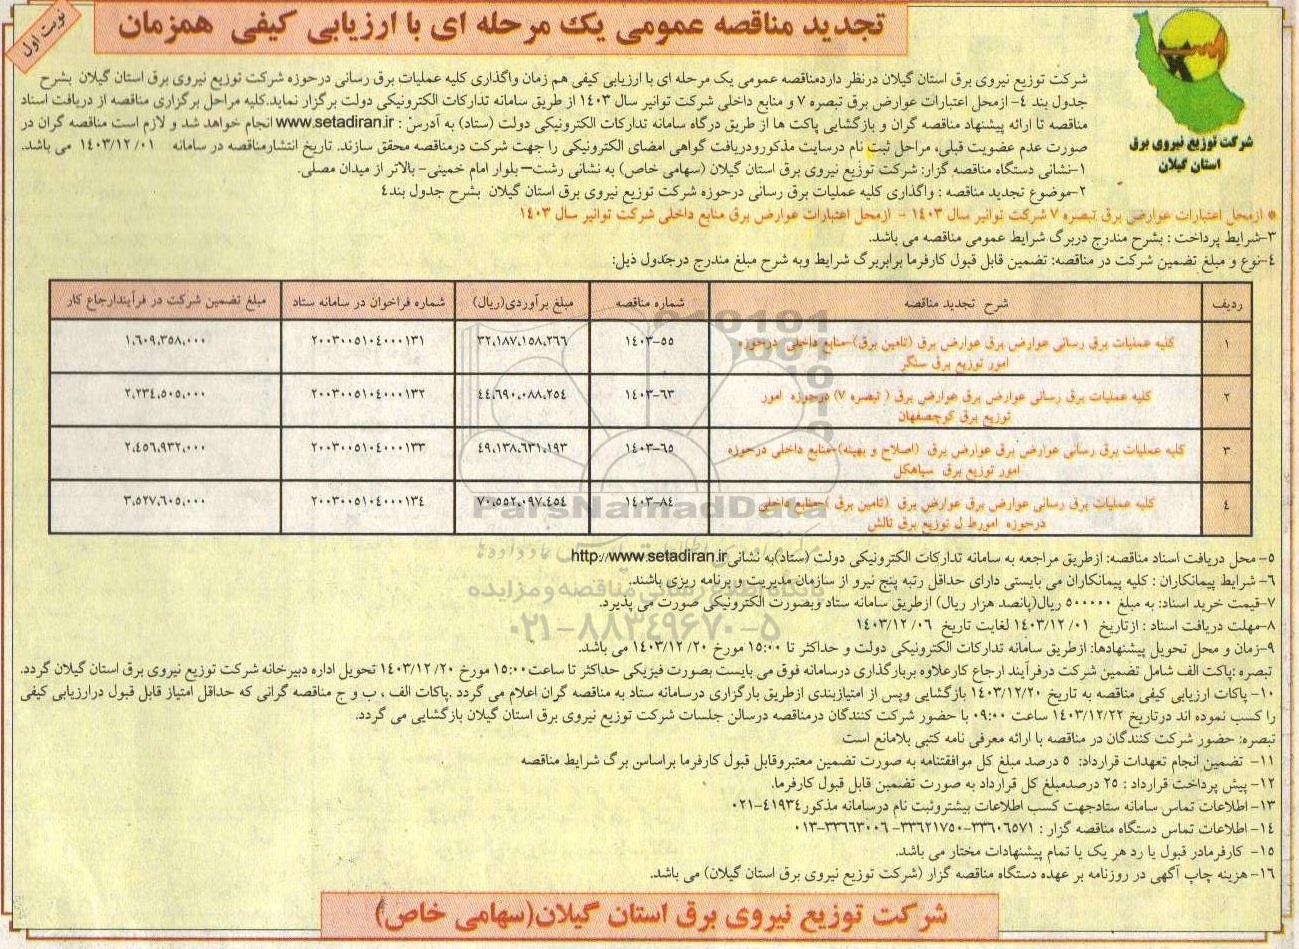 نوبت اول
تجدید مناقصه عمومی یک مرحله ای با ارزیابی کیفی همزمان
شرکت توزیع نیروی برق
استان گیلان
شرکت توزیع نیروی برق استان گیلان درنظر داردمناقصه عمومی یک مرحله ای با ارزیابی کیفی هم زمان واگذاری کلیه عملیات برق رسانی درحوزه شرکت توزیع نیروی برق استان گیلان بشرح
جدول بند ۴- ازمحل اعتبارات عوارض برق تبصره ۷ و منابع داخلی شرکت توانیر سال ۱۴۰۳ از طریق سامانه تدارکات الکترونیکی دولت برگزار نماید.کلیه مراحل برگزاری مناقصه از دریافت اسناد
مناقصه تا ارائه پیشنهاد مناقصه گران و بازگشایی پاکت ها از طریق درگاه سامانه تدارکات الکترونیکی دولت (ستاد) به آدرس : www.setadiran.ir انجام خواهد شد و لازم است مناقصه گران در
صورت عدم عضویت قبلی، مراحل ثبت نام درسایت مذکورودریافت گواهی امضای الکترونیکی را جهت شرکت درمناقصه محقق سازند. تاریخ انتشارمناقصه در سامانه ۱۴۰۳/۱۲/۰۱ می باشد.
۱-نشانی دستگاه مناقصه گزار: شرکت توزیع نیروی برق استان گیلان (سهامی خاص) به نشانی رشت–بلوار امام خمینی- بالاتر از میدان مصلی.
۲-موضوع تجدید مناقصه : واگذاری کلیه عملیات برق رسانی درحوزه شرکت توزیع نیروی برق استان گیلان بشرح جدول بند۴
* ازمحل اعتبارات عوارض برق تبصره ۷ شرکت توانیر سال ۱۴۰۳ - ازمحل اعتبارات عوارض برق منابع داخلی شرکت توانیر سال ۱۴۰۳
۳-شرایط پرداخت : بشرح مندرج دربرگ شرایط عمومی مناقصه می باشد.
۴-نوع و مبلغ تضمین شرکت در مناقصه: تضمین قابل قبول کارفرما برابربرگ شرایط وبه شرح مبلغ مندرج درجدول ذیل:
ردیف شرح تجدید مناقصه شماره مناقصه مبلغ برآوردی(ریال) شماره فراخوان در سامانه ستاد مبلغ تضمین شرکت در فرآیندارجاع کار
۱ کلیه عملیات برق رسانی عوارض برق عوارض برق (تامین برق)-منابع داخلی درحوزه امور توزیع برق سنگر ۱۴۰۳-۵۵ ۳۲،۱۸۷،۱۵۸،۲۶۶ ۲۰۰۳۰۰۵۱۰۴۰۰۰۱۳۱ ۱،۶۰۹،۳۵۸،۰۰۰
۲ کلیه عملیات برق رسانی عوارض برق عوارض برق ( تبصره ۷) درحوزه امور توزیع برق کوچصفهان ۱۴۰۳-۶۳ ۴۴،۶۹۰،۰۸۸،۲۵۴ ۲۰۰۳۰۰۵۱۰۴۰۰۰۱۳۲ ۲،۲۳۴،۵۰۵،۰۰۰
۳ کلیه عملیات برق رسانی عوارض برق عوارض برق (اصلاح و بهینه)-منابع داخلی درحوزه امور توزیع برق سیاهکل ۱۴۰۳-۶۵ ۴۹،۱۳۸،۶۳۱،۱۹۳ ۲۰۰۳۰۰۵۱۰۴۰۰۰۱۳۳ ۲،۴۵۶،۹۳۲،۰۰۰
۴ کلیه عملیات برق رسانی عوارض برق عوارض برق (تامین برق )-منابع داخلی درحوزه امورط ل توزیع برق تالش ۱۴۰۳-۸۴ ۷۰،۵۵۲،۰۹۷،۴۵۴ ۲۰۰۳۰۰۵۱۰۴۰۰۰۱۳۴ ۳،۵۲۷،۶۰۵،۰۰۰
ParsNamadData
۵- محل دریافت اسناد مناقصه: ازطریق مراجعه به سامانه تدارکات الکترونیکی دولت (ستاد)به نشانی http://www.setadiran.ir
۶- شرایط پیمانکاران : کلیه پیمانکاران می بایستی دارای حداقل رتبه پنج نیرو از سازمان مدیریت و برنامه ریزی باشند.
پایگاه اطلاع رسانی مناقصه و مزایده
۷-قیمت خرید اسناد: به مبلغ ۵۰۰۰۰۰ ریال(پانصد هزار ریال) ازطریق سامانه ستاد وبصورت الکترونیکی صورت می پذیرد.
۸-مهلت دریافت اسناد : ازتاریخ ۱۴۰۳/۱۲/۰۱ لغایت تاریخ ۱۴۰۳/۱۲/۰۶
۰۲۱-۸۸۳۴۹۶۷۰-۵
۹-زمان و محل تحویل پیشنهادها: ازطریق سامانه تدارکات الکترونیکی دولت و حداکثر تا ۱۵:۰۰ مورخ ۱۴۰۳/۱۲/۲۰ می باشد.
تبصره :پاکت الف شامل تضمین شرکت درفرآیند ارجاع کارعلاوه بربارگذاری درسامانه فوق می بایست بصورت فیزیکی حداکثر تا ساعت۱۵:۰۰ مورخ ۱۴۰۳/۱۲/۲۰ تحویل اداره دبیرخانه شرکت توزیع نیروی برق استان گیلان گردد.
۱۰- پاکات ارزیابی کیفی مناقصه به تاریخ ۱۴۰۳/۱۲/۲۰ بازگشایی وپس از امتیازبندی ازطریق بارگزاری درسامانه ستاد به مناقصه گران اعلام می گردد .پاکات الف ، ب و ج مناقصه گرانی که حداقل امتیاز قابل قبول درارزیابی کیفی
را کسب نموده اند درتاریخ ۱۴۰۳/۱۲/۲۲ ساعت ۰۹:۰۰ با حضور شرکت کنندگان درمناقصه درسالن جلسات شرکت توزیع نیروی برق استان گیلان بازگشایی می گردد.
تبصره: حضور شرکت کنندگان در مناقصه با ارائه معرفی نامه کتبی بلامانع است
۱۱- تضمین انجام تعهدات قرارداد: ۵ درصد مبلغ کل موافقتنامه به صورت تضمین معتبروقابل قبول کارفرما براساس برگ شرایط مناقصه
۱۲- پیش پرداخت قرارداد : ۲۵ درصدمبلغ کل قرارداد به صورت تضمین قابل قبول کارفرما.
۱۳- اطلاعات تماس سامانه ستادجهت کسب اطلاعات بیشتروثبت نام درسامانه مذکور۴۱۹۳۴-۰۲۱
۱۴- اطلاعات تماس دستگاه مناقصه گزار : ۳۳۶۰۶۵۷۱-۳۳۶۲۱۷۵۰- ۳۳۶۶۳۰۰۶-۰۱۳
۱۵- کارفرمادر قبول یا رد هر یک یا تمام پیشنهادات مختار می باشد.
۱۶- هزینه چاپ آگهی در روزنامه بر عهده دستگاه مناقصه گزار (شرکت توزیع نیروی برق استان گیلان) می باشد.
شرکت توزیع نیروی برق استان گیلان(سهامی خاص)